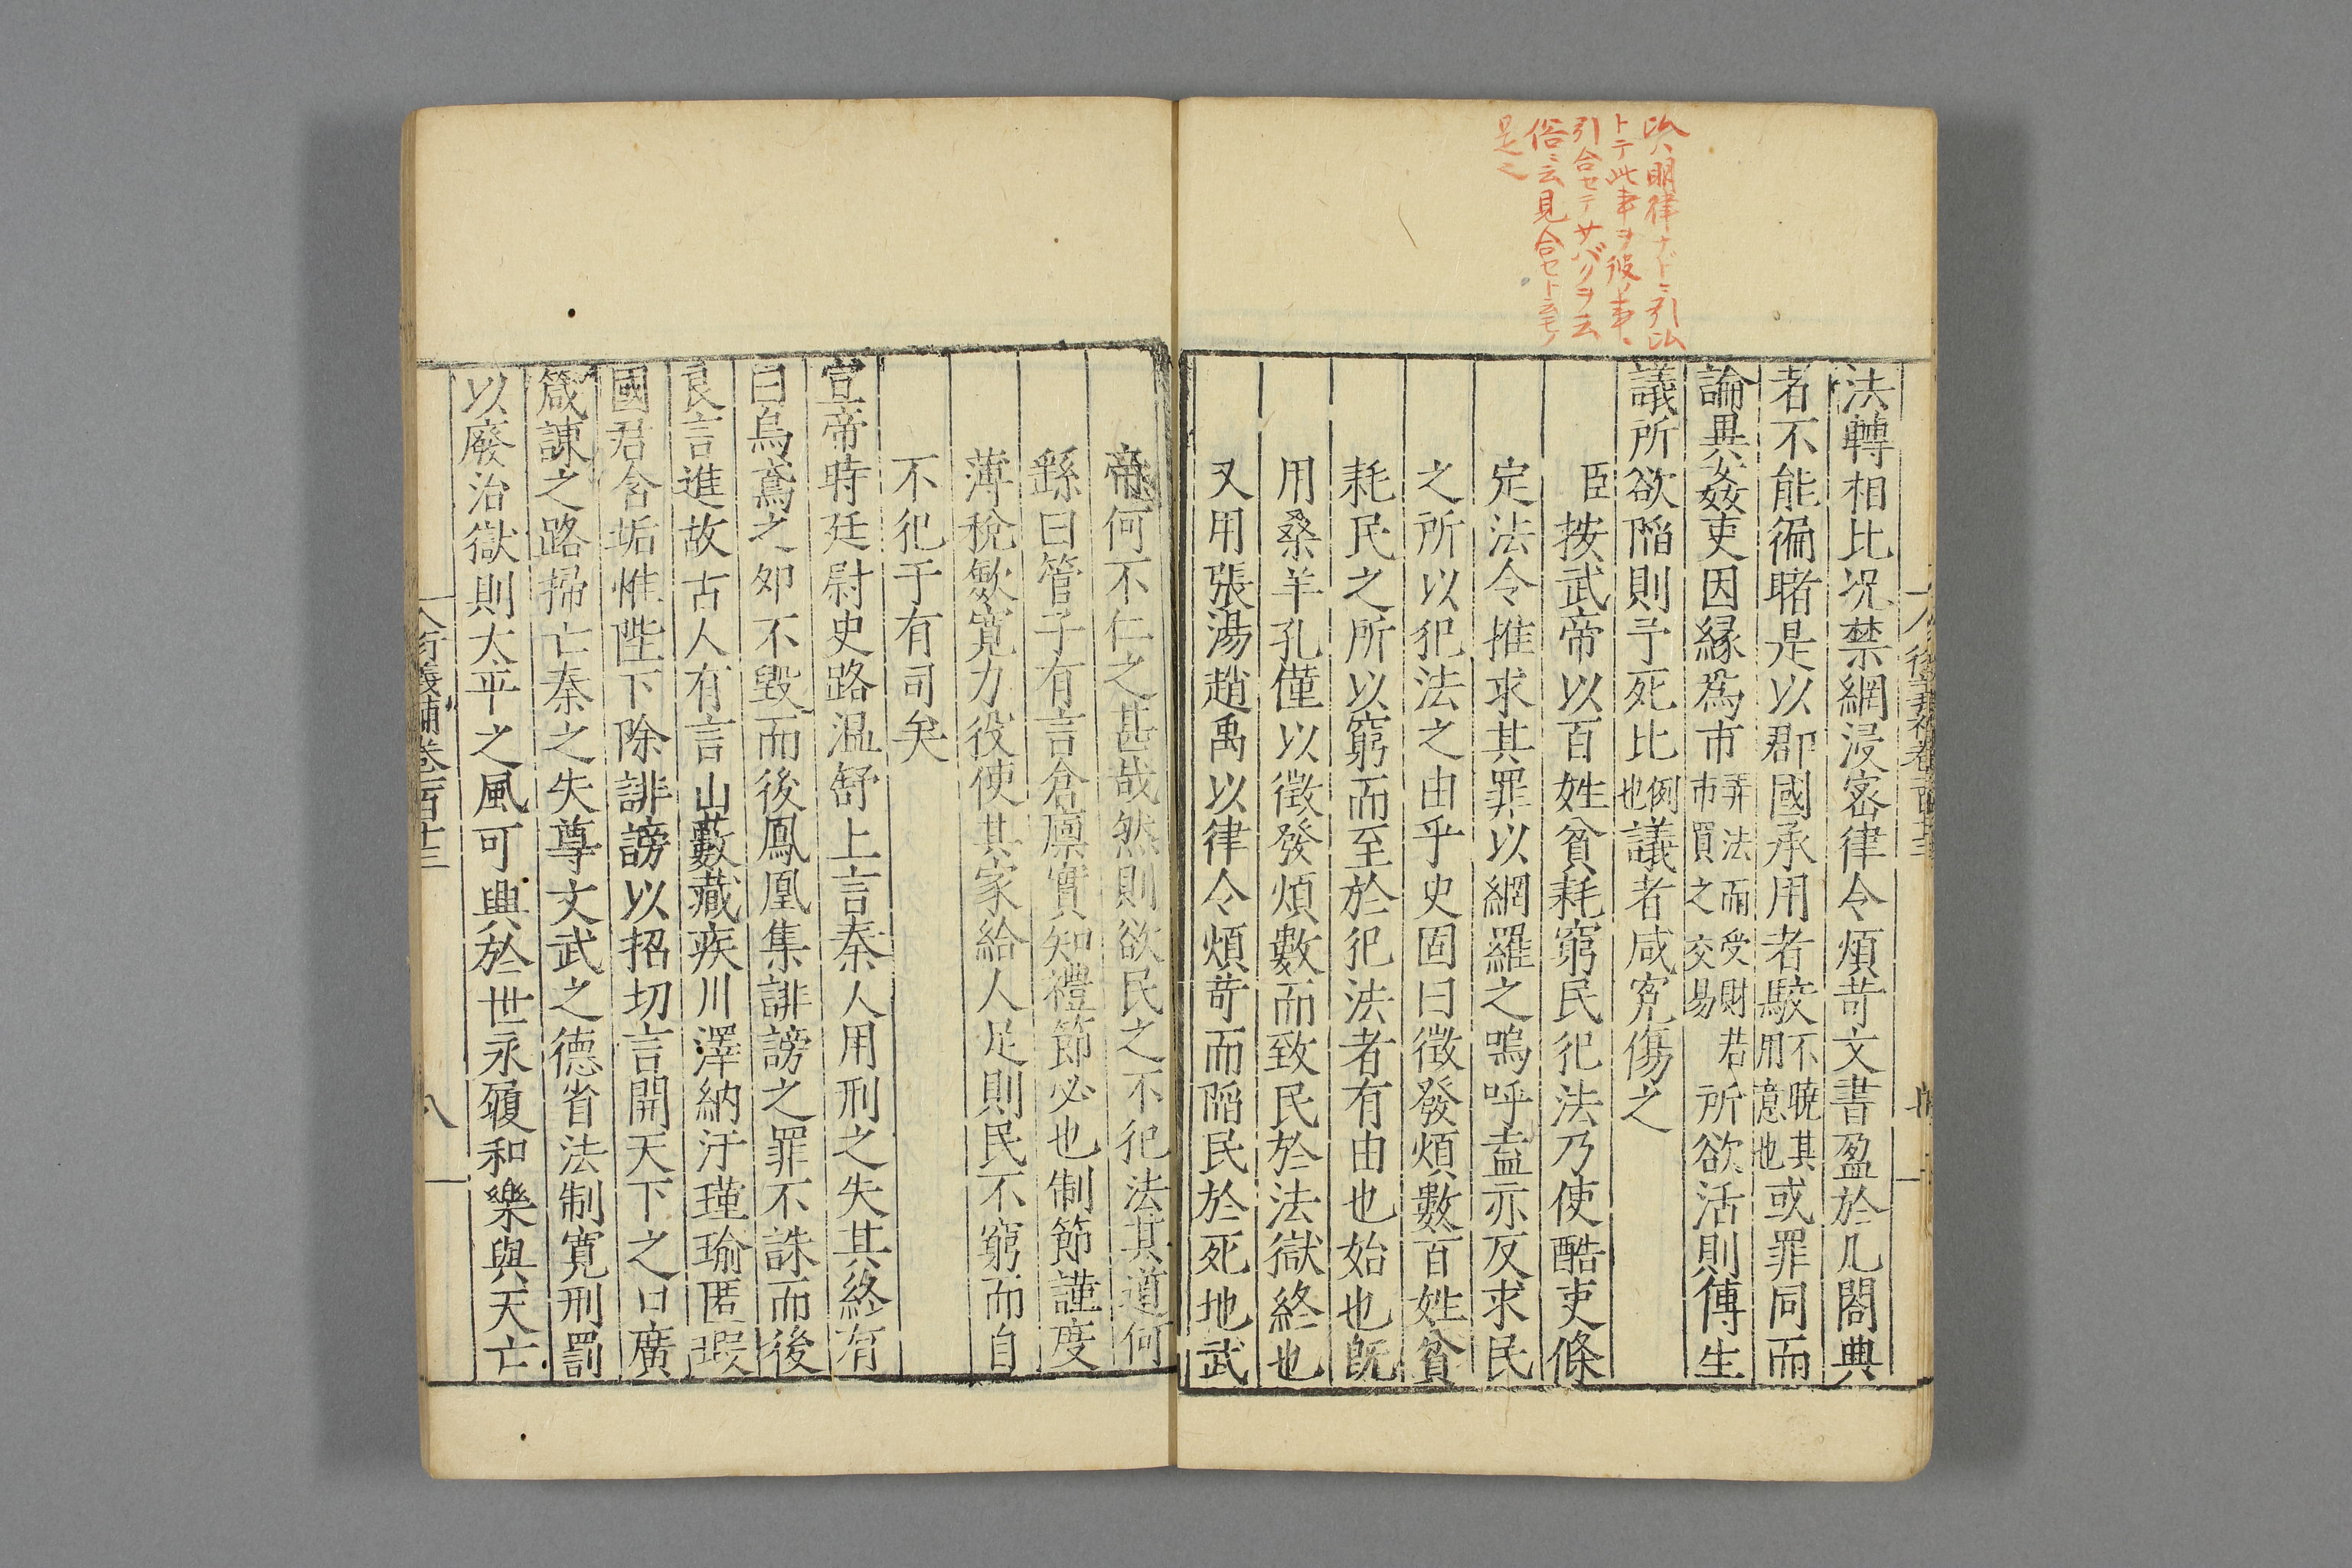 比ハ明律ナドニ引比
トテ此事ヲ彼ノ事ニ
引合セテサバクヲ云
俗ニ云見合セト云モノ
是也
法轉相比况禁網浸密律令煩苛文書盈於几閣典
者不能徧睹是以郡國承用者駮不曉其用意也或罪同而
論異姦吏因緣爲市弄法而受財若市買之交易所欲活則傅生
議所欲陷則予死比例也議者咸冤傷之
臣按武帝以百姓貧耗窮民犯法乃使酷吏條
定法令推求其罪以網羅之嗚呼盍亦反求民
之所以犯法之由乎史固曰徵發煩數百姓貧
耗民之所以窮而至於犯法者有由也始也既
用桑羊孔僅以徵發煩數而致民於法獄終也
又用張湯趙禹以律令煩苛而陷民於死地武
帝何不仁之甚哉然則欲民之不犯法其道何
繇曰管子有言倉廩實知禮節必也制節謹度
薄稅斂寬力役使其家給人足則民不窮而自
不犯于有司矣
宣帝時廷尉史路温舒上言秦人用刑之失其終有
曰烏鳶之卵不毀而後鳳凰集誹謗之罪不誅而後
良言進故古人有言山藪藏疾川澤納汙瑾瑜匿瑕
國君含垢惟陛下除誹謗以招切言開天下之口廣
箴諫之路掃亡秦之失尊文武之德省法制寬刑罰
以廢治獄則太平之風可興於世永履和樂與天亡
八